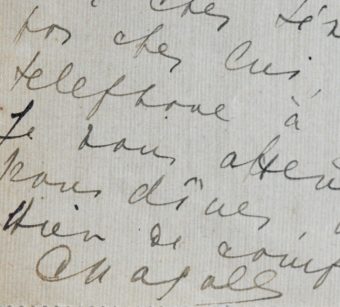 chez
pas chez lui,
telefhone à
Je vous atten
pour dîner,
de comp
Chagall